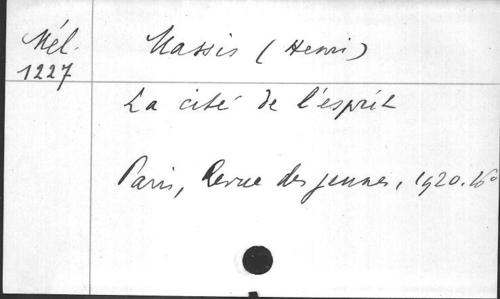 Mél. Massis (Henri)
1227
La cité de l'esprit
Paris, Revue des jeunes, 1920. 16°